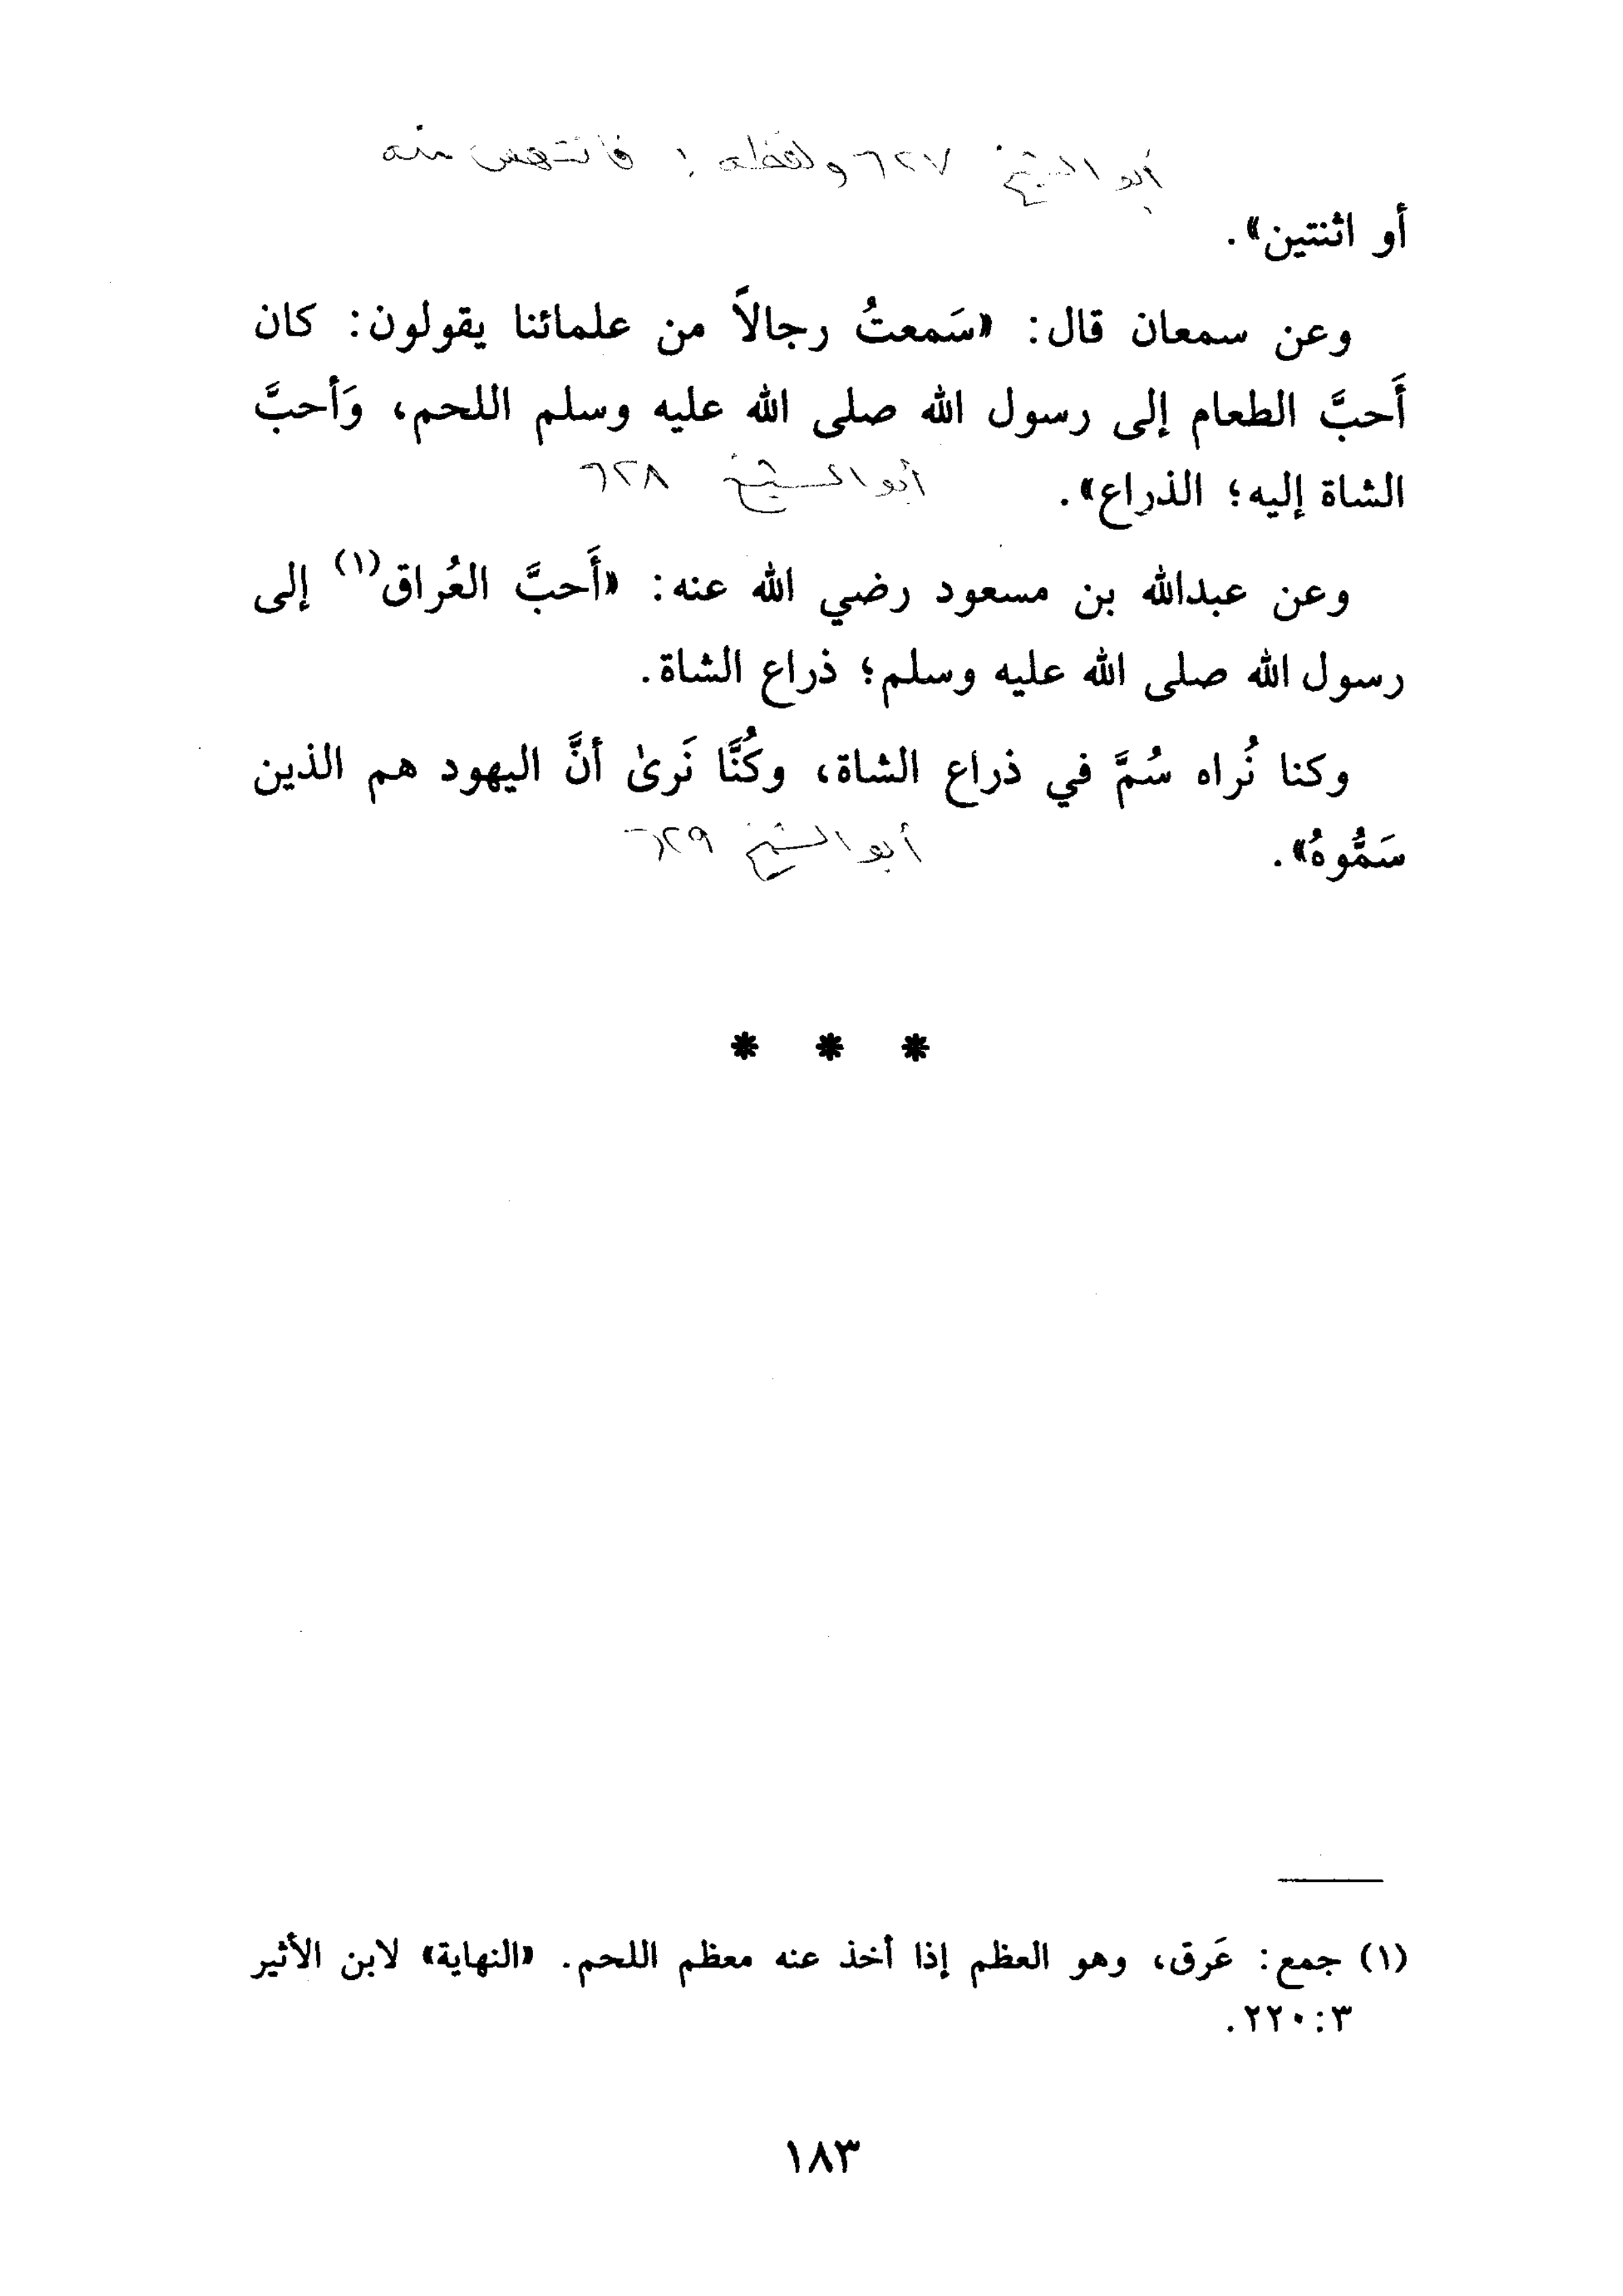 أبو الشيخ ٦٢٧ ولفظه : فانتهس منه
أو اثنتين».
وعن سمعان قال: «سَمعتُ رجالاً من علمائنا يقولون: كان
أَحبَّ الطعام إلى رسول الله صلى الله عليه وسلم اللحم، وَأحبَّ
الشاة إليه؛ الذراع».
أبو الشيخ ٦٢٨
وعن عبدالله بن مسعود رضي الله عنه: «أَحبَّ العُراق(١) إلى
رسول الله صلى الله عليه وسلم؛ ذراع الشاة.
وكنا نُراه سُمَّ في ذراع الشاة، وكُنَّا نَرىٰ أنَّ اليهود هم الذين
سَمُّوهُ».
أبو الشيخ ٦٢٩
* * *
(١) جمع: عَرق، وهو العظم إذا أخذ عنه معظم اللحم. «النهاية» لابن الأثير
٣:٢٢٠.
١٨٣